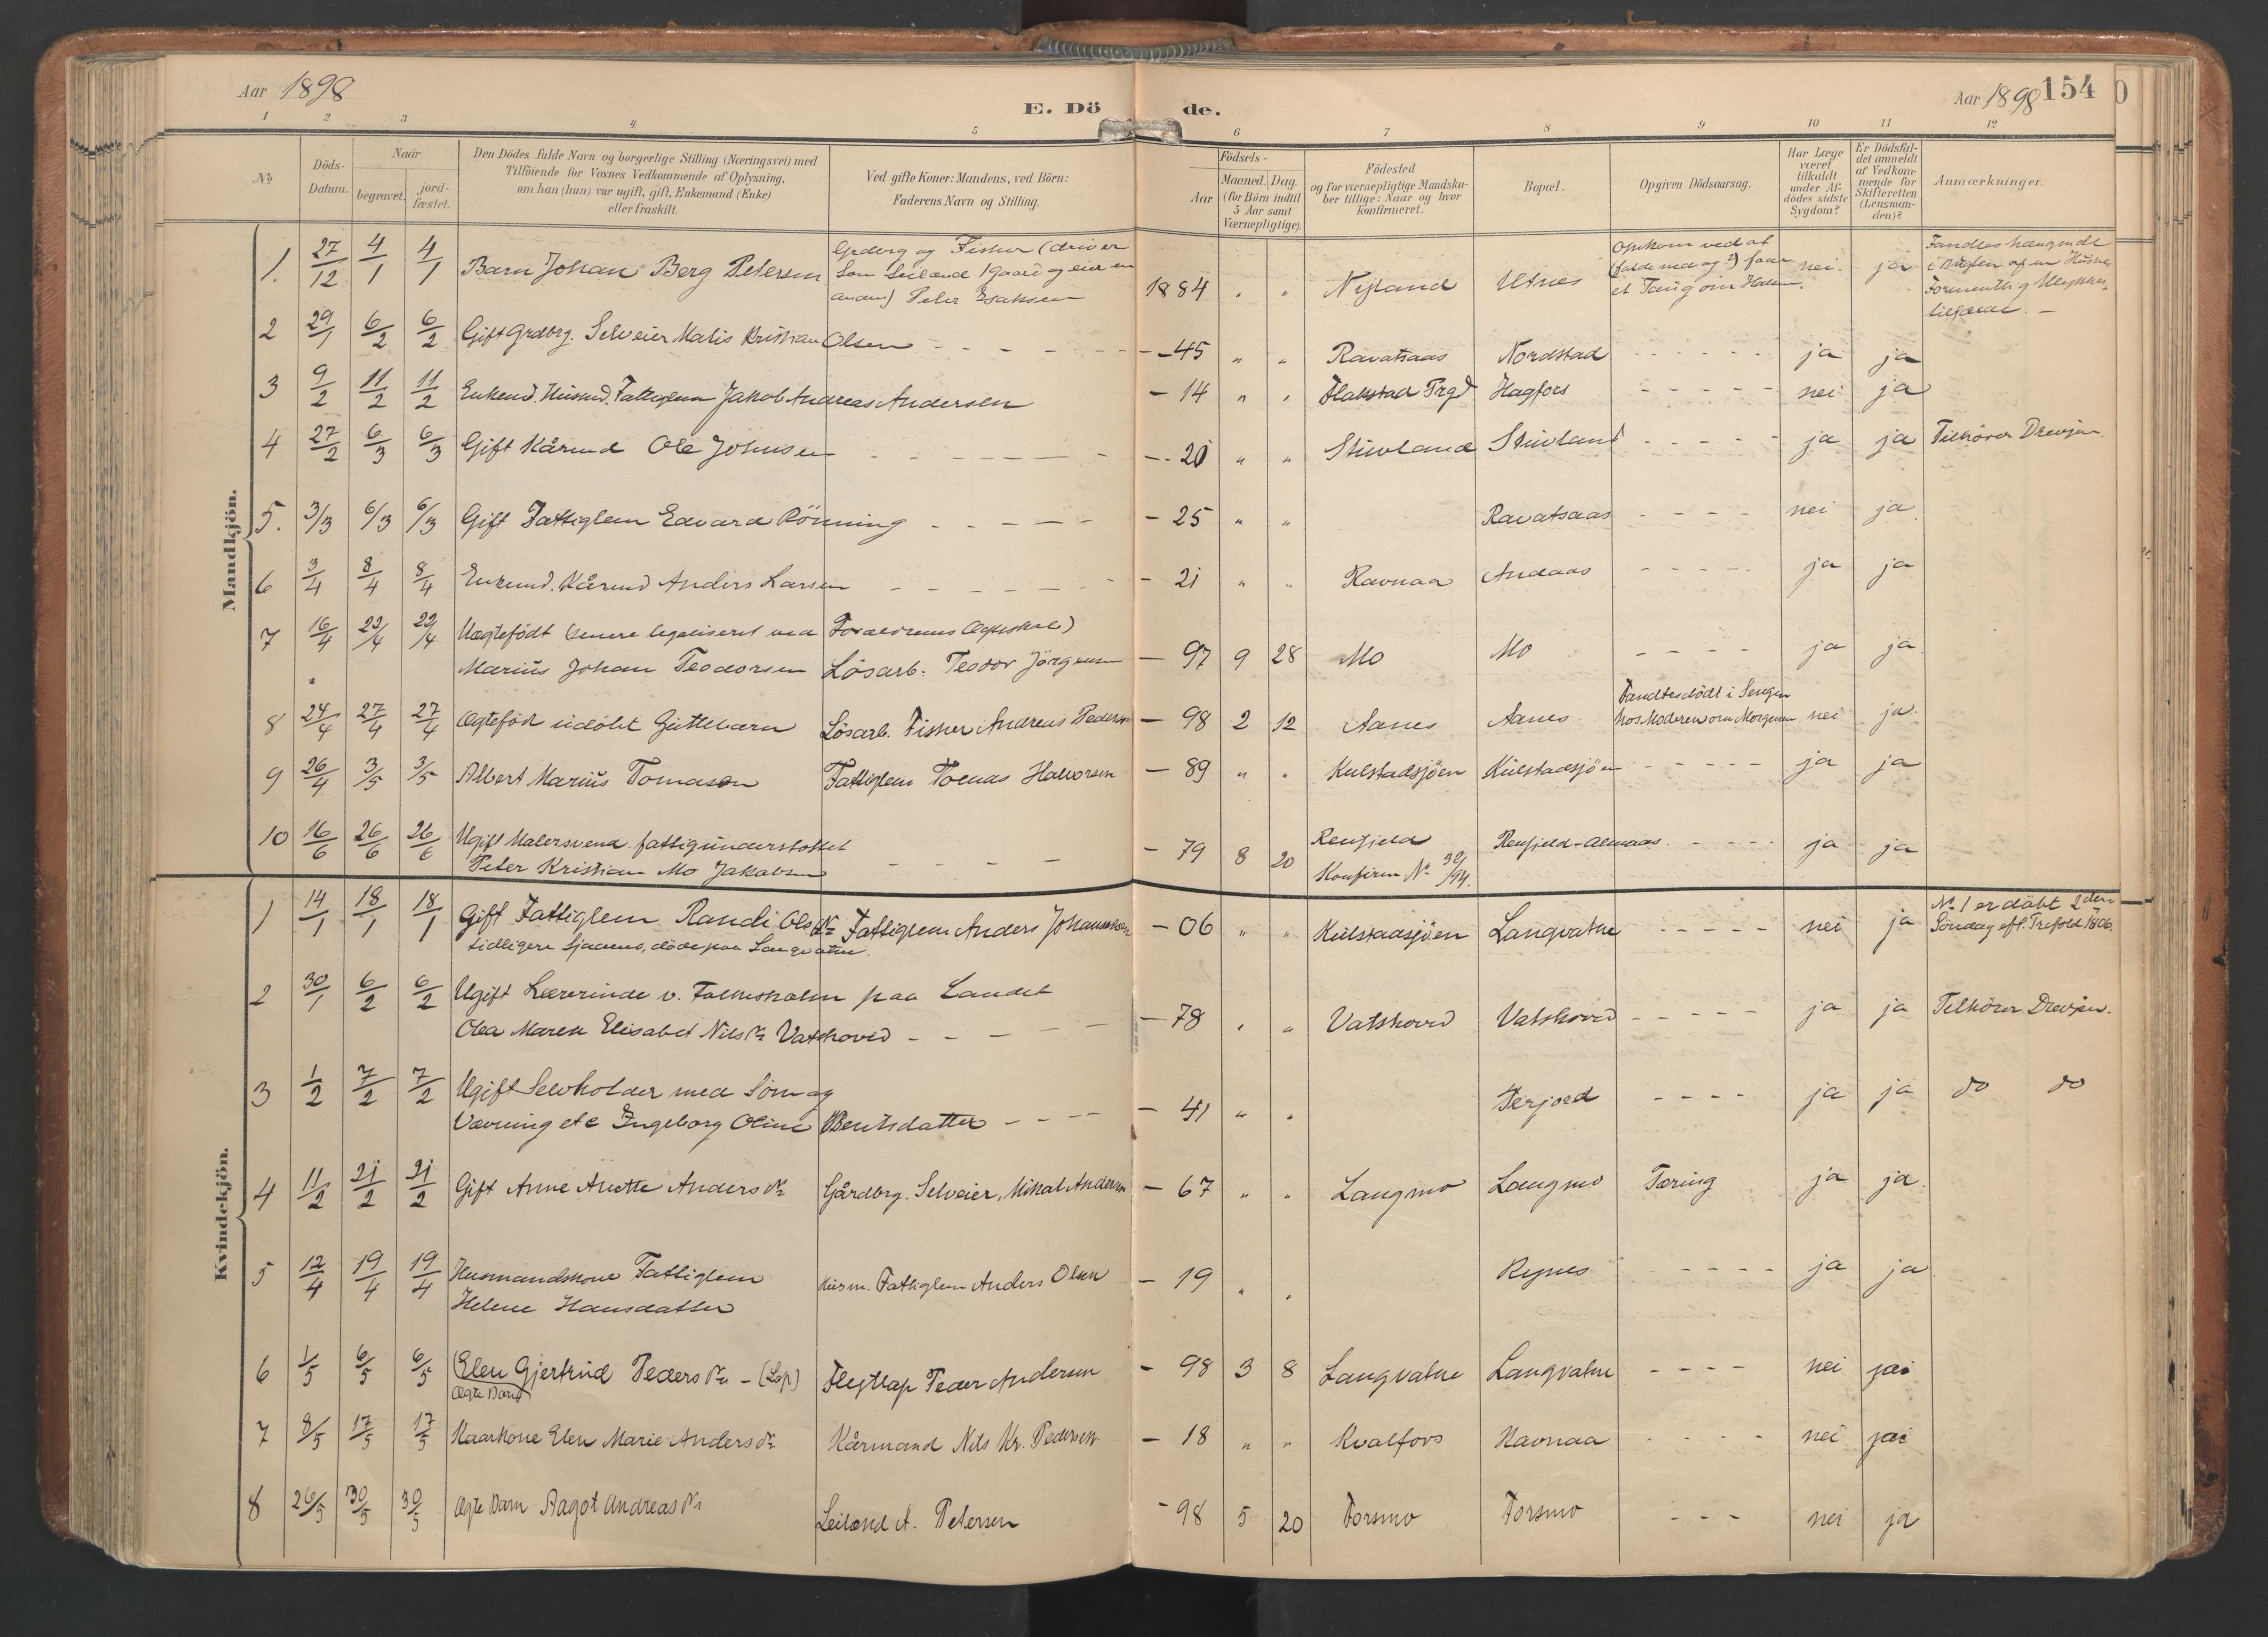 Aar 1898
E. Döde.
Aar 1898 154
1 2 3 4 5 6 7 8 9 10 11 12
№
Döds-Datum.
Naar
begravet.
jord-fæstet.
Den Dödes fulde Navn og borgerlige Stilling (Næringsvei) med
Tilföiende for Voxnes Vedkommende af Oplysning,
om han (hun) var ugift, gift, Enkemand (Enke)
eller fraskilt.
Ved gifte Koner: Mandens, ved Börn:
Faderens Navn og Stilling.
Födsels-
Aar
Maaned. Dag.
(for Börn indtil
5 Aar samt
Værnepligtige).
Födested
og for værnepligtige Mandska-
ber tillige: Naar og hvor
konfirmeret.
Bopæl.
Opgiven Dödsaarsag.
Har Læge
været
tilkaldt
under Af-
dödes sidste
Sygdom?
Er Dödsfal-
det anmeldt
af Vedkom-
mende for
Skifteretten
(Lensman-
den)?
Anmærkninger.
Mandkjön.
1. 27/12 4/1 4/1 Barn Johan Berg Petersen Grdbrg og Fisker (driver
som Leilænd 1 gaard og eier en
anden) Peter Esaksen 1884 " " Nyland Utnes Omkom ved at
(falde ned og?) faa
et Taug om Halsen. nei. ja Fandtes hængende
i Bugten af en Huske
Formentlig Ulykkes-
tilfælde. —
2 29/1 6/2 6/2 Gift Grdbrg. Selveier Matis Kristian Olsen - - - - - -45 " " Ravatsaas Nordstad - - - - - ja ja
3 9/2 11/2 11/2 Enkemd. Husmd. Fattiglem Jakob Andreas Andersen - 14 " " Flakstad Prgd Hagfors - - - - - nei ja
4 27/2 6/3 6/3 Gift Kårmd Ole Johnsen - - - - - -20 " " Stuvland Stuvland - - - - - ja ja Tilhörer Drevjen.
5. 3/3 6/3 6/3 Gift Fattiglem Edvard Rönning - - - - - 25 " " Ravatsaas - - - - nei ja.
6 3/4 8/4 8/4 Enkemd. Kårmd Anders Larsen - - - - - 21 " " Ravnaa Andaas - - - - - ja ja
7 16/4 22/4 22/4 Uægtefödt (senere legaliseret ved Forældrenes Ægteskab)
Marius Johan Teodorsen Lösarb. Teodor Jörgensen — 97 9 28 Mo Mo - - - - ja ja.
8 24/4 27/4 27/4 Ægtefödt udöbt Guttebarn Lösarb. Fisker Andreas Pedersen — 98 2 12 Aanes Aanes Fandtes dödt i Sengen
hos Moderen om Morgenen nei ja.
9 26/4 3/5 3/5 Albert Marius Tomasen Fattiglem Tomas Halvorsen — 89 " " Kulstadsjöen Kulstadsjöen - - - - - ja ja
10 16/6 26/6 26/6 Ugift Malersvend. fattigunderstöttet
Peter Kristian Mo Jakobsen - - - - - 79 8 20 Renfjeld
Konfirm № 32/94. Renfjeld-Almaas. - - - - ja ja
Kvindekjön.
1 14/1 18/1 18/1 Gift Fattiglem Randi Olsdr Fattiglem Anders Johannesen
tidligere Sjaanes, döde paa Langvatne. - 06 " " Kulstaasjöen Langvatne - - - - - nei ja № 1 er döbt 2den
Söndag eft. Trefold 1806.
2 30/1 6/2 6/2 Ugift Lærerinde v. Folkeskolen paa Landet
Olea Maren Elisabet Nilsdr Vatshoved - - - - —78 " " Vatshoved Vatshoved - - - - - ja ja Tilhörer Drevjen.
3 1/2 7/2 7/2 Ugift Selvholder med Söm og
Vævning etc Ingeborg Oline Bentsdatter - - - - - 41 " " Terjord - - - - ja ja do do
4 11/2 21/2 21/2 Gift Anne Anette Andersdr Gårdbrg. Selveier, Mikal Andersen - 67 " " Langmo Langmo Tæring ja ja.
5 12/4 19/4 19/4 Husmandskone Fattiglem
Helene Hansdatter Husm. Fattiglem Anders Olsen - 19 " " Rynes - - - - - ja ja.
6 1/5 6/5 6/5 Elen Gjertrud Pedersdr - (Lap)
Ægte Barn Flytlap Peder Andersen - 98 3 8 Langvatne Langvatne - - - - nei ja
7 8/5 17/5 17/5 Kaarkone Elen Marie Andersdr Kårmand Nils Kr. Pedersen - 18 " " Kvalfors Ravnaa - - - - - nei ja
8 26/5 30/5 30/5 Ægte Barn Aagot Andreasdr Leilænd A. Petersen - 98 5 20 Forsmo Forsmo - - - nei ja